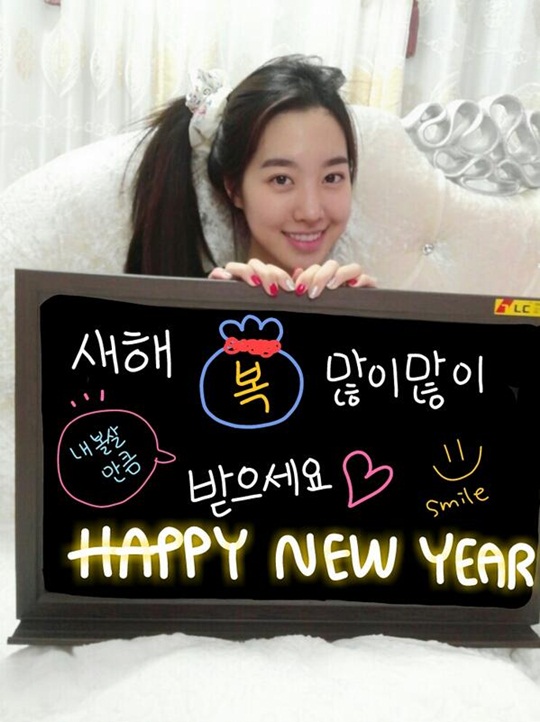 LC
새해 복 많이많이
내 볼살
만큼
받으세요
smile
HAPPY NEW YEAR